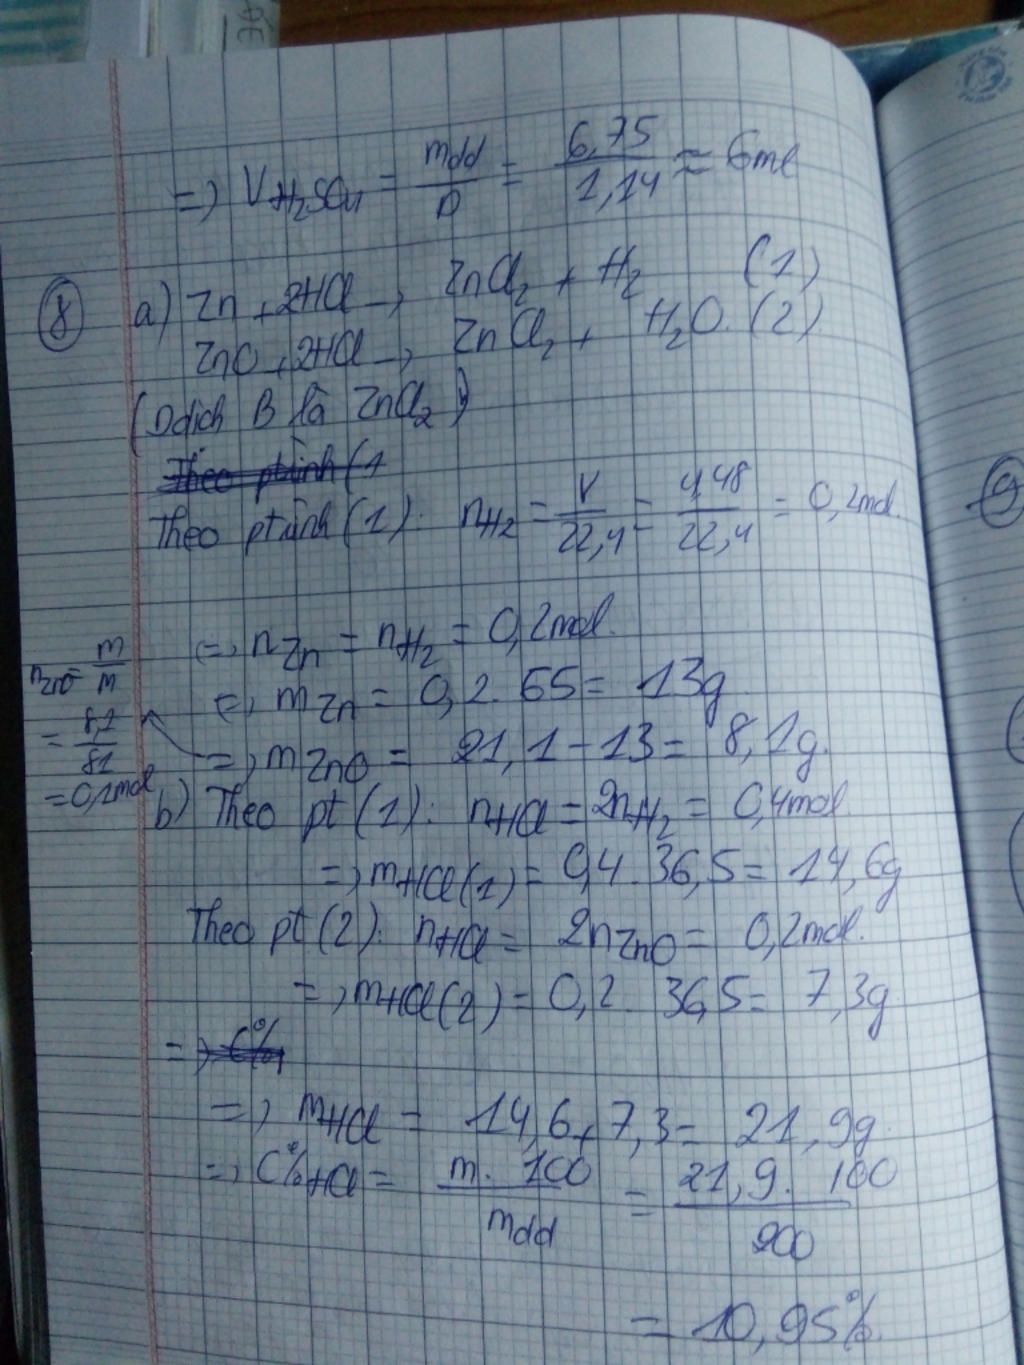 => V H₂SO₄ = mdd/D = 6,75/1,14 ≈ 6ml
⑧ a) Zn + 2HCl -> ZnCl₂ + H₂ (1)
ZnO + 2HCl -> ZnCl₂ + H₂O. (2)
(Ddịch B là ZnCl₂)
Theo ptrình (1
Theo ptrình (1): nH₂ = V/22,4 = 4,48/22,4 = 0,2mol.
=> nZn = nH₂ = 0,2mol.
=> mZn = 0,2.65 = 13g
=> mZnO = 21,1 - 13 = 8,1g.
nZnO = m/M
= 8,1/81
= 0,1mol
b) Theo pt (1): nHCl = 2nH₂ = 0,4mol
=> mHCl(1) = 0,4.36,5 = 14,6g
Theo pt (2): nHCl = 2nZnO = 0,2mol.
=> mHCl(2) = 0,2.36,5 = 7,3g
=> C%
=> mHCl = 14,6 + 7,3 = 21,9g.
=> C%HCl = m.100/mdd = 21,9.100/200
= 10,95%.